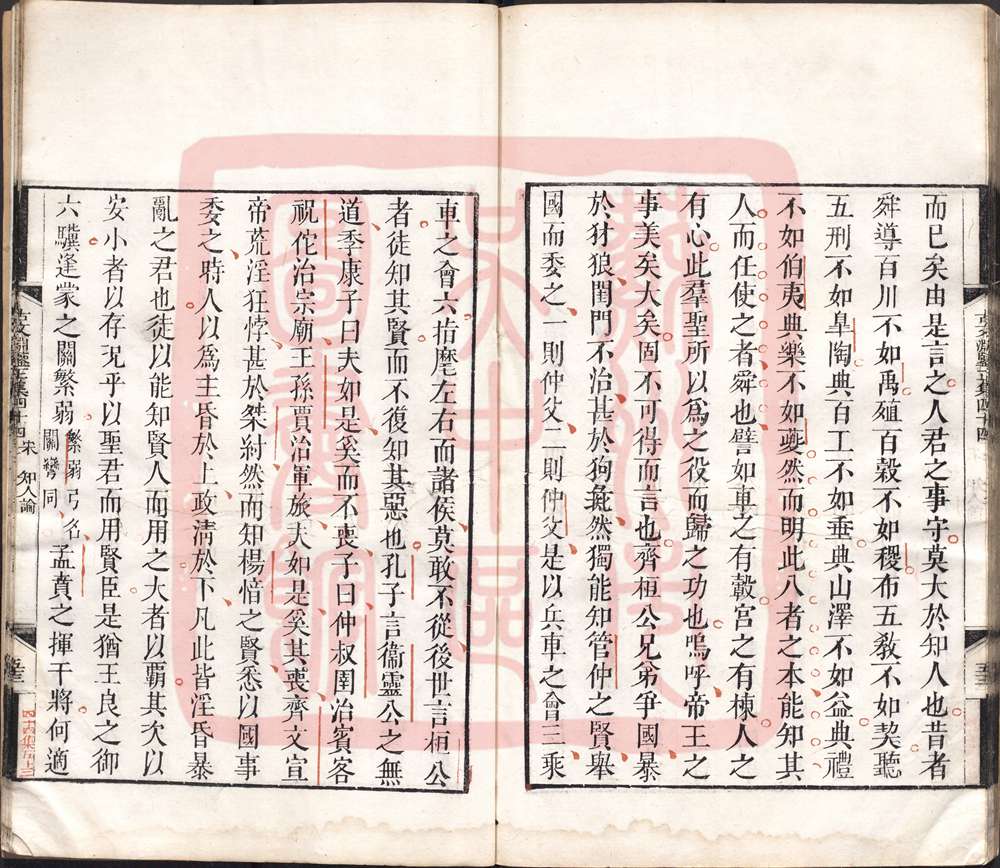 而巳矣由是言之人君之事守莫大於知人也昔者
舜導百川不如禹殖百穀不如稷布五敎不如契聽
五刑不如臯陶典百工不如垂典山澤不如益典禮
不如伯夷典樂不如夔然而明此八者之本能知其
人而任使之者舜也譬如車之有轂宫之有棟人之
有心此羣聖所以爲之役而歸之功也嗚呼帝王之
事美矣大矣固不可得而言也齊桓公兄弟爭國暴
於豺狼閨門不治甚於狗彘然獨能知管仲之賢舉
國而委之一則仲父二則仲父是以兵車之會三乘
車之會六指麾左右而諸侯莫敢不從後世言桓公
者徒知其賢而不復知其惡也孔子言衞靈公之無
道季康子曰夫如是奚而不喪子曰仲叔圉治賓客
祝佗治宗廟王孫賈治軍旅夫如是奚其喪齊文宣
帝荒淫狂悖甚於桀紂然而知楊愔之賢悉以國事
委之時人以爲主昏於上政淸於下凡此皆淫昏暴
亂之君也徒以能知賢人而用之大者以覇其次以
安小者以存况乎以聖君而用賢臣是猶王良之御
六驥逄蒙之關繁弱 繁弱弓名 關彎同 孟賁之揮干將何適
古文淵鑒正集四十四 宋 知人論